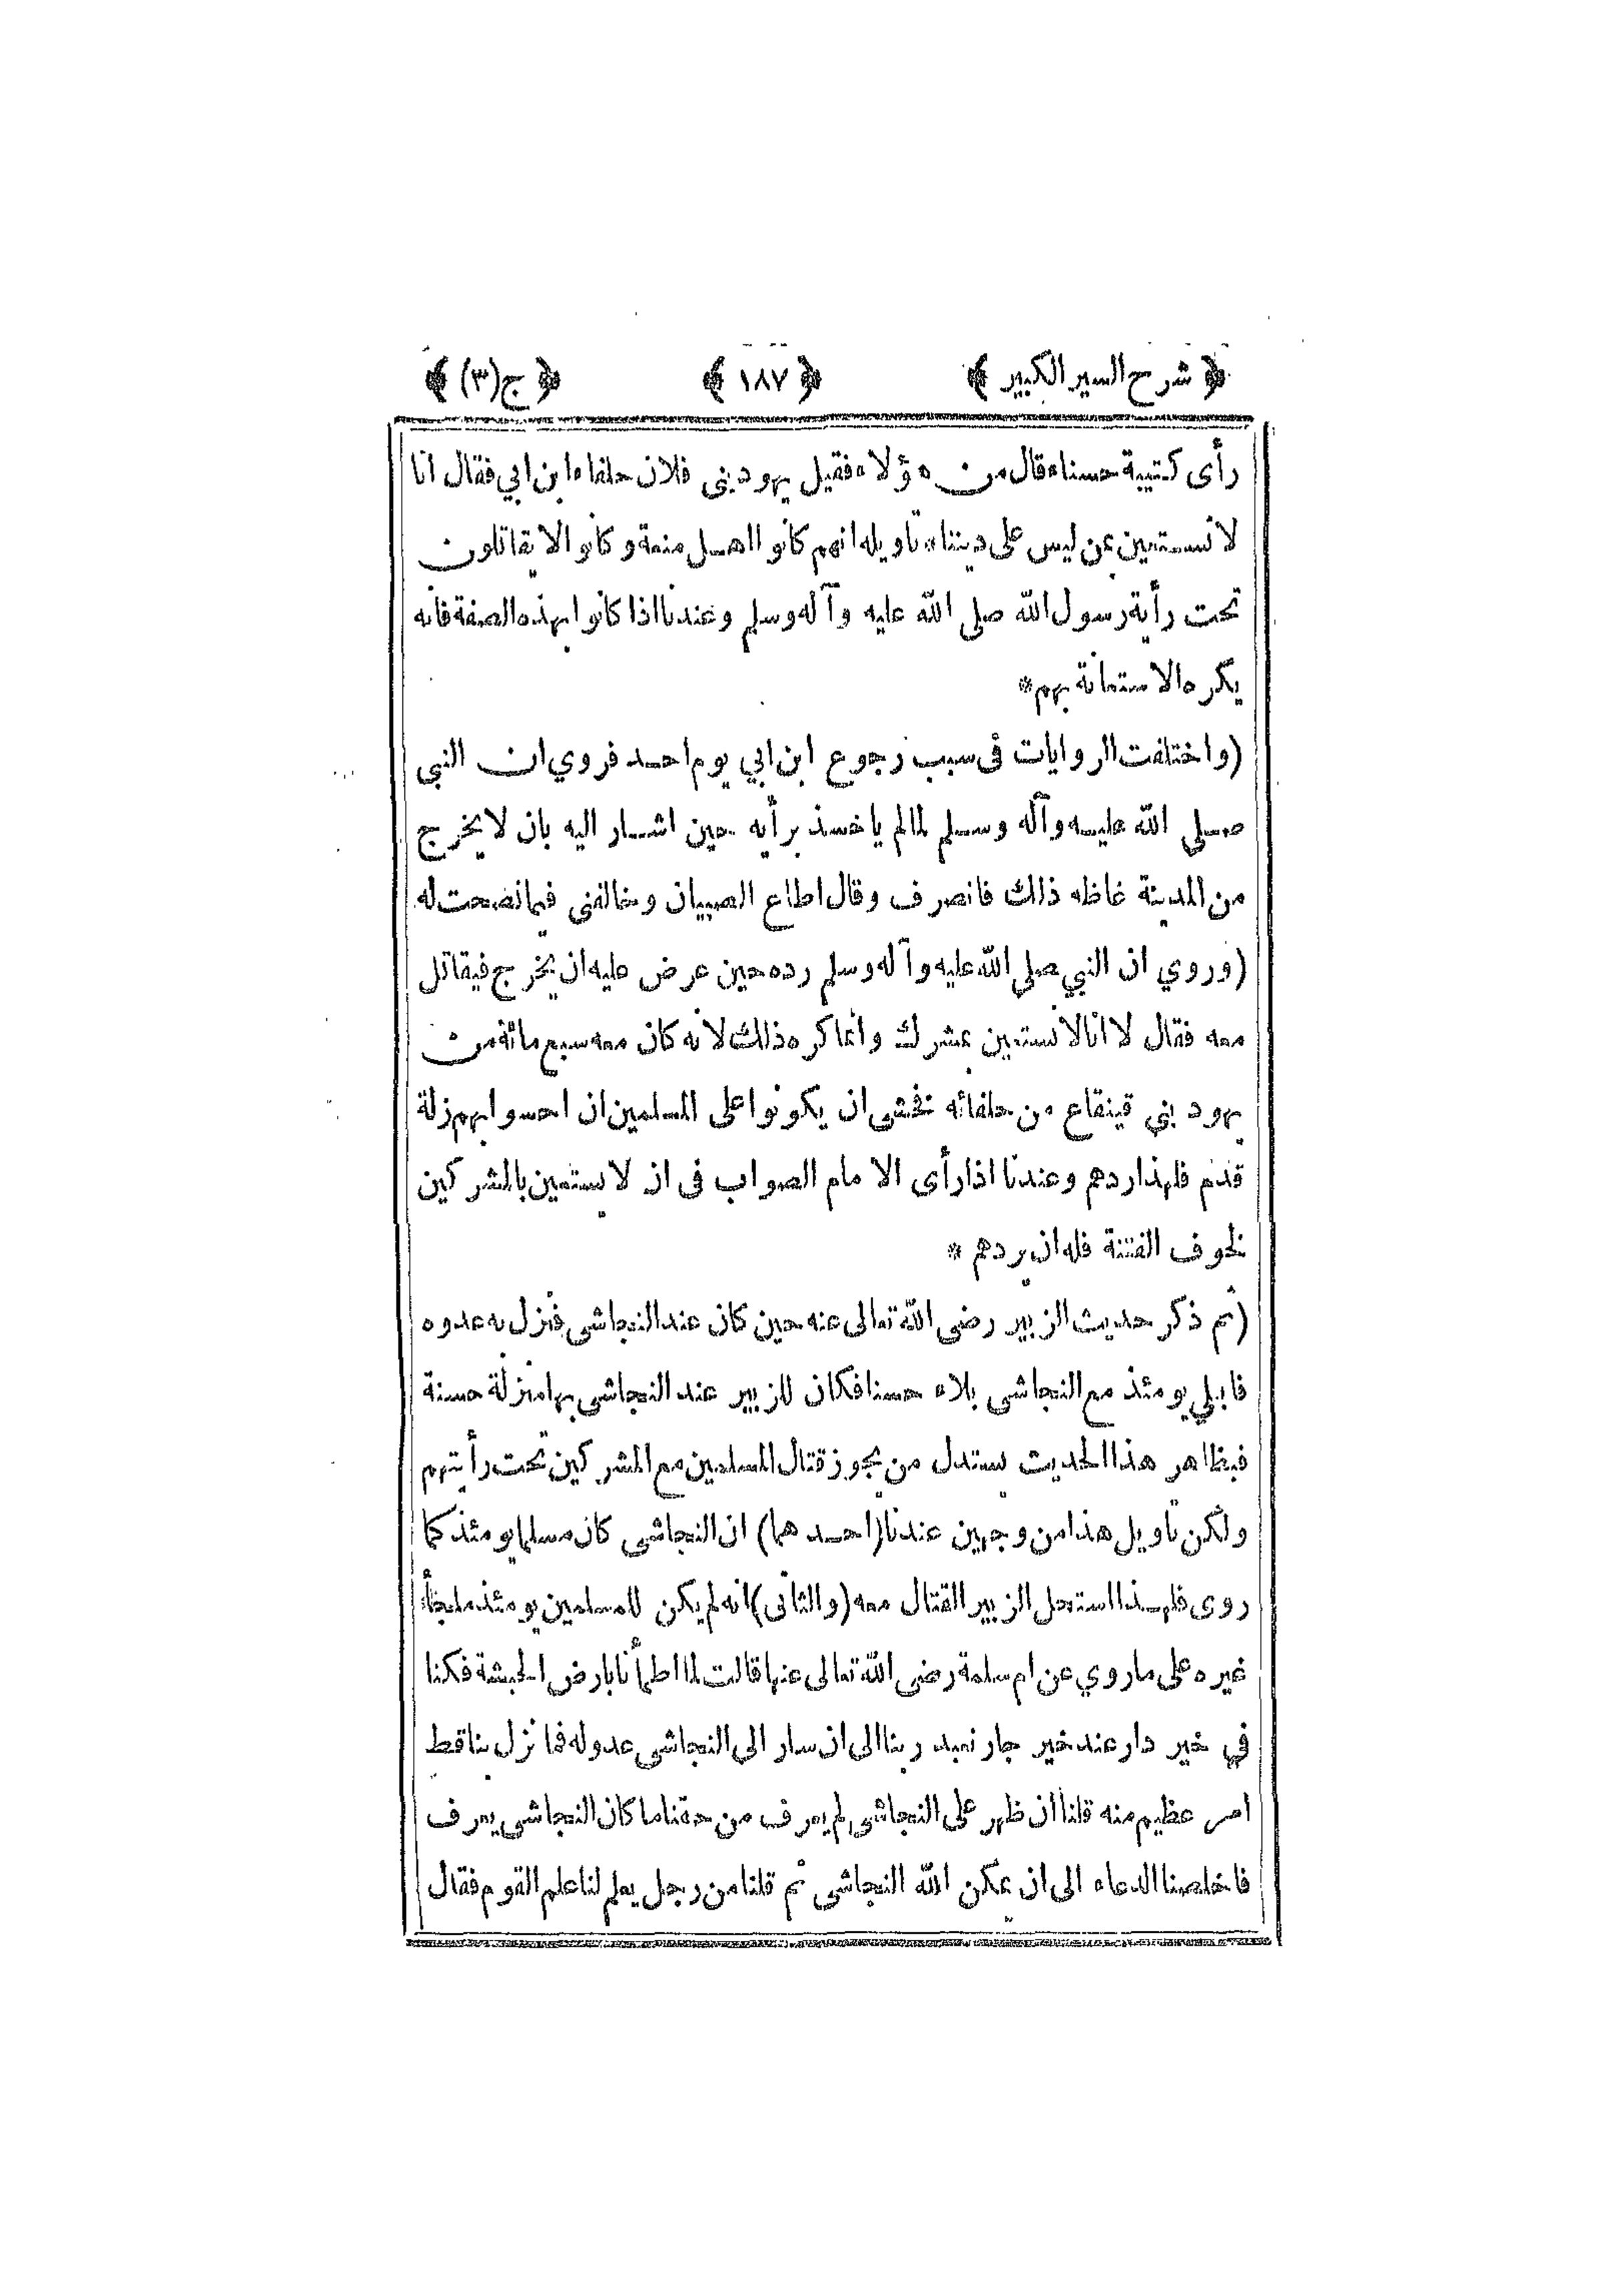 ﴿ شرح السير الكبير ﴾ ﴿ ١٨٧ ﴾ ﴿ ج(٣) ﴾
رأى كتيبة حسناء قال من هؤلاء فقيل يهود بنى فلان حلفاء ابن ابي فقال انا
لا نستعين بمن ليس على ديننا * تاويله انهم كانوا اهل منعة و كانوا لا يقاتلون
تحت رأية رسول الله صلى الله عليه وآله وسلم وعندنا اذا كانوا بهذه الصفة فانه
يكره الاستعانة بهم *
(واختلفت الروايات فى سبب رجوع ابن ابي يوم احد فروي ان النبى
صلى الله عليه وآله وسلم لما لم ياخذ برأيه حين اشار اليه بان لا يخرج
من المدينة غاظه ذلك فانصرف وقال اطاع الصبيان وخالفنى فيما نصحت له
(وروي ان النبي صلى الله عليه وآله وسلم رده حين عرض عليه ان يخرج فيقاتل
معه فقال لا انا لا نستعين بمشرك وانما كره ذلك لانه كان معه سبع مائة من
يهود بني قينقاع من حلفائه فخشى ان يكونوا على المسلمين ان احسوا بهم زلة
قدم فلهذا ردهم وعندنا اذا رأى الامام الصواب فى ان لا يستعين بالمشركين
لخوف الفتنة فله ان يردهم *
(ثم ذكر حديث الزبير رضى الله تعالى عنه حين كان عند النجاشى فنزل به عدوه
فابلي يومئذ مع النجاشى بلاء حسنا فكان للزبير عند النجاشى بها منزلة حسنة
فبظاهر هذا الحديث يستدل من يجوز قتال المسلمين مع المشركين تحت رأيتهم
ولكن تأويل هذا من وجهين عندنا (احدهما) ان النجاشى كان مسلما يومئذ كما
روى فلهذا استحل الزبير القتال معه (والثانى) انه لم يكن للمسلمين يومئذ ملجأ
غيره على ما روي عن ام سلمة رضى الله تعالى عنها قالت لما اطمأنا بارض الحبشة فكنا
في خير دار عند خير جار نعبد ربنا الى ان سار الى النجاشى عدو له فما نزل بنا قط
امر عظيم منه قلنا ان ظهر على النجاشى لم يعرف من حقنا ما كان النجاشى يعرف
فاخلصنا الدعاء الى ان يمكن الله النجاشى ثم قلنا من رجل يعلم لنا علم القوم فقال